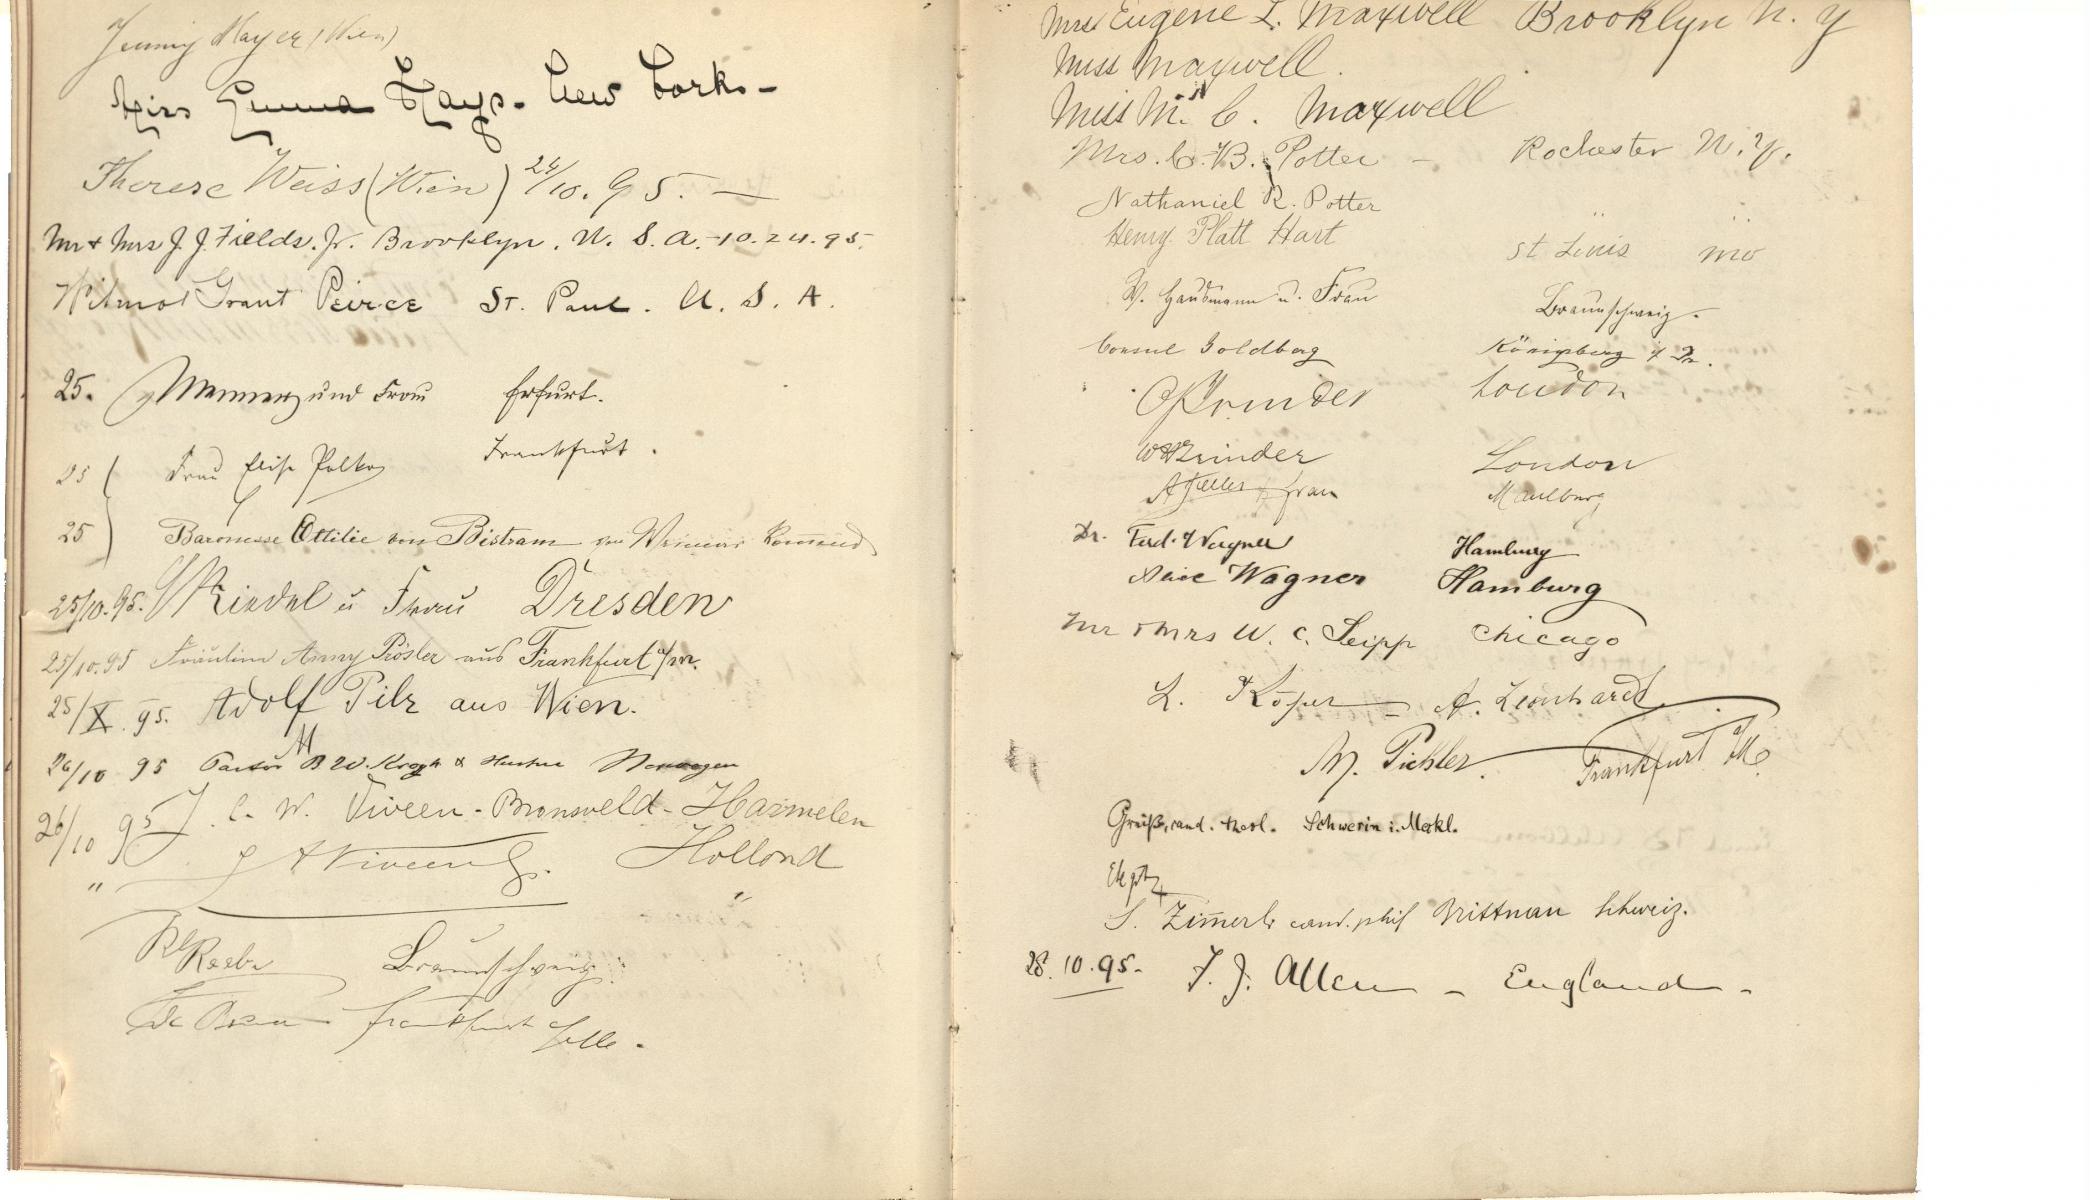 Jenny Mayer (Wien)
Miss Emma Hays - New York -
Therese Weiss (Wien) 24/10. 95. —
Mr + Mrs J. J. Fields. Jr. Brooklyn. U. S. A. - 10. 24. 95.
Wilmot Grant Peirce St. Paul. U. S. A.
25. und Frau Erfurt.
25 Frau Elise Polko Frankfurt.
25 Baronesse Ottilie von Bistram von Weimar kommend
25/10. 95. Riedel u Frau Dresden
25/10. 95 Fräulein Anny Prösler aus Frankfurt a/m.
25/X. 95. Adolf Pilz aus Wien.
26/10 95 Pastor B W. Krogh & Hustru Norwegen
26/10 95 J. C. W. Viveen - Bronsveld - Harmelen
" J A Viveen Holland
"
Braunschweig
Frankfurt
Mrs Eugene L. Maxwell Brooklyn N. Y
Miss Maxwell.
Miss M. C. Maxwell
Mrs. C. B. Potter - Rochester N. Y.
Nathaniel R. Potter " "
Henry Platt Hart St Louis Mo
W. Hausmann u. Frau Braunschweig.
Consul Goldberg Königsberg i/
Grinder London
Grinder London
A Faller & frau Maulburg
Dr. Ferd. Wagner Hamburg
Alice Wagner Hamburg
Mr & Mrs W. C. Seipp Chicago
L. Köper - A. Leonhardt
M. Pichler. Frankfurt a/M.
Greiß, cand. theol. Schwerin i. Meckl.
S. Zimerli cand. phil Wittnau Schweiz.
28. 10. 95. F. J. Allen - England -